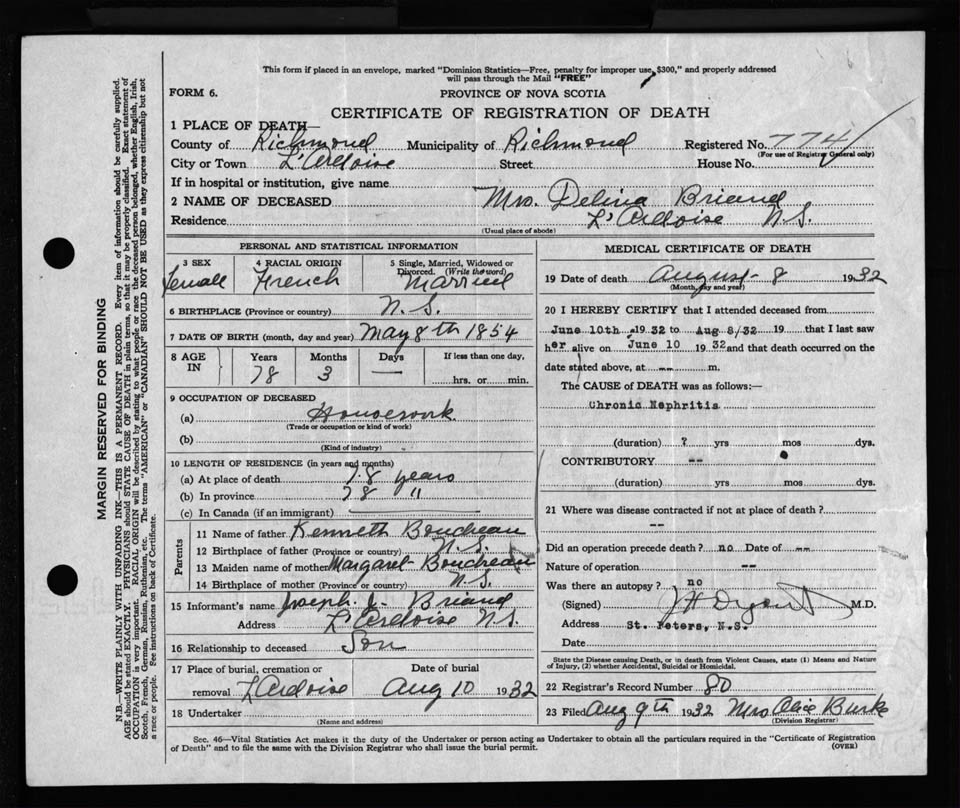 This form if placed in an envelope, marked "Dominion Statistics—Free, penalty for improper use, $300," and properly addressed
will pass through the Mail "FREE"
FORM 6.
PROVINCE OF NOVA SCOTIA
CERTIFICATE OF REGISTRATION OF DEATH
1 PLACE OF DEATH—
County of Richmond Municipality of Richmond Registered No. 774
(For use of Registrar General only)
City or Town L'Ardoise Street House No.
If in hospital or institution, give name
2 NAME OF DECEASED Mrs. Delina Briand
Residence L'Ardoise N.S.
(Usual place of abode)
PERSONAL AND STATISTICAL INFORMATION
3 SEX
Femall
4 RACIAL ORIGIN
French
5 Single, Married, Widowed or
Divorced. (Write the word)
Married
6 BIRTHPLACE (Province or country) N.S.
7 DATE OF BIRTH (month, day and year) May 8th 1854
8 AGE IN
Years Months Days If less than one day,
78 3 — hrs. or min.
9 OCCUPATION OF DECEASED
(a) Housework
(Trade or occupation or kind of work)
(b)
(Kind of industry)
10 LENGTH OF RESIDENCE (in years and months)
(a) At place of death 78 years
(b) In province 78 "
(c) In Canada (if an immigrant)
Parents
11 Name of father Kenneth Boucheau
12 Birthplace of father (Province or country) N.S.
13 Maiden name of mother Margaret Boucheau
14 Birthplace of mother (Province or country) N.S.
15 Informant's name Joseph J. Briand
Address L'Ardoise N.S.
16 Relationship to deceased Son
17 Place of burial, cremation or Date of burial
removal L'Ardoise Aug 10 1932
18 Undertaker
(Name and address)
MEDICAL CERTIFICATE OF DEATH
19 Date of death August 8 1932
(Month, day and year)
20 I HEREBY CERTIFY that I attended deceased from
June 10th 1932 to Aug 8/32 19 that I last saw
her alive on June 10 1932 and that death occurred on the
date stated above, at -- m.
The CAUSE of DEATH was as follows:—
Chronic Nephritis
(duration) ? yrs mos dys.
CONTRIBUTORY --
(duration) yrs mos dys.
21 Where was disease contracted if not at place of death?
--
Did an operation precede death? no Date of --
Nature of operation --
Was there an autopsy? no
(Signed) M.D.
Address St. Peters, N.S.
Date
State the Disease causing Death, or in death from Violent Causes, state (1) Means and Nature
of Injury, (2) whether Accidental, Suicidal or Homicidal.
22 Registrar's Record Number 80
23 Filed Aug 9th 1932 Mrs Alice Burke
(Division Registrar)
Sec. 46—Vital Statistics Act makes it the duty of the Undertaker or person acting as Undertaker to obtain all the particulars required in the "Certificate of Registration
of Death" and to file the same with the Division Registrar who shall issue the burial permit.
(OVER)
MARGIN RESERVED FOR BINDING
N.B.—WRITE PLAINLY WITH UNFADING INK—THIS IS A PERMANENT RECORD. Every item of information should be carefully supplied.
AGE should be stated EXACTLY. PHYSICIANS should STATE CAUSE OF DEATH in plain terms, so that it may be properly classified. Exact statement of
OCCUPATION is very important. RACIAL ORIGIN will be described by stating to what people or race the deceased person belonged, whether English, Irish,
Scotch, French, German, Russian, Ruthenian, etc. The terms "AMERICAN" or "CANADIAN" SHOULD NOT BE USED as they express citizenship but not
a race or people. See instructions on back of Certificate.